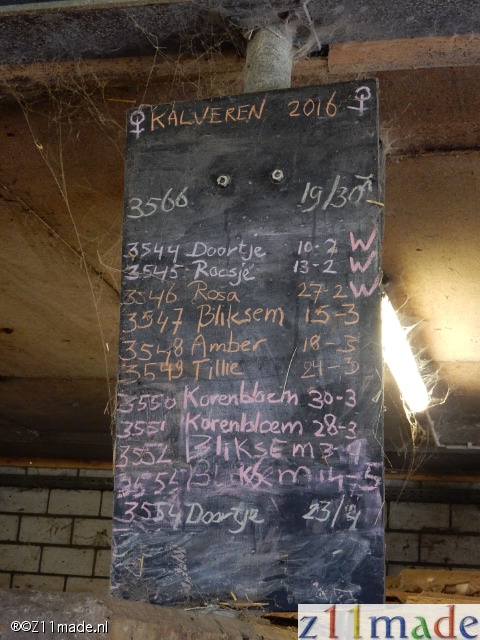 ♀ KALVEREN 2016 ♀
3566 19/30
3544 Doortje 10-2 W
3545 Roosje 13-2 W
3546 Rosa 27-2 W
3547 Bliksem 15-3
3548 Amber 18-3
3549 Tillie 21-3
3550 Korenbloem 30-3
3551 Korenbloem 28-3
3552 BLIKSEM 3-4
3553 BLIKSEM 14-5
3554 Doortje 23/4
®©Z11made.nl
z11made